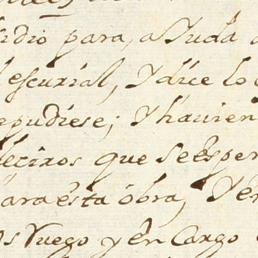 dio para, aiuda
escurial, Y dice lo
pudiese; Y havien
deciros que se esper
para esta obra, Y e
os Ruego y en Cargo